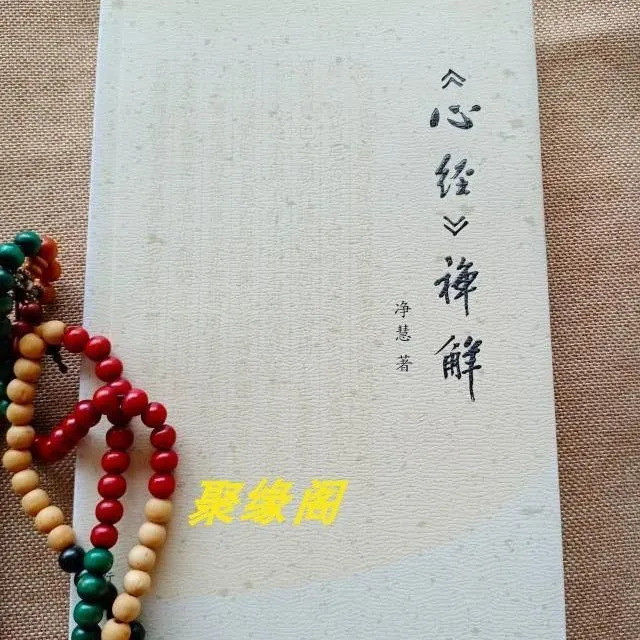 《心经》禅解
净慧 著
聚缘阁